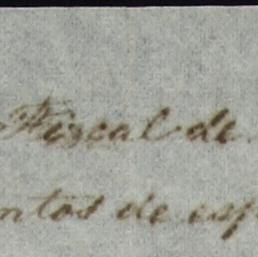 Fiscal de
ntos de esp